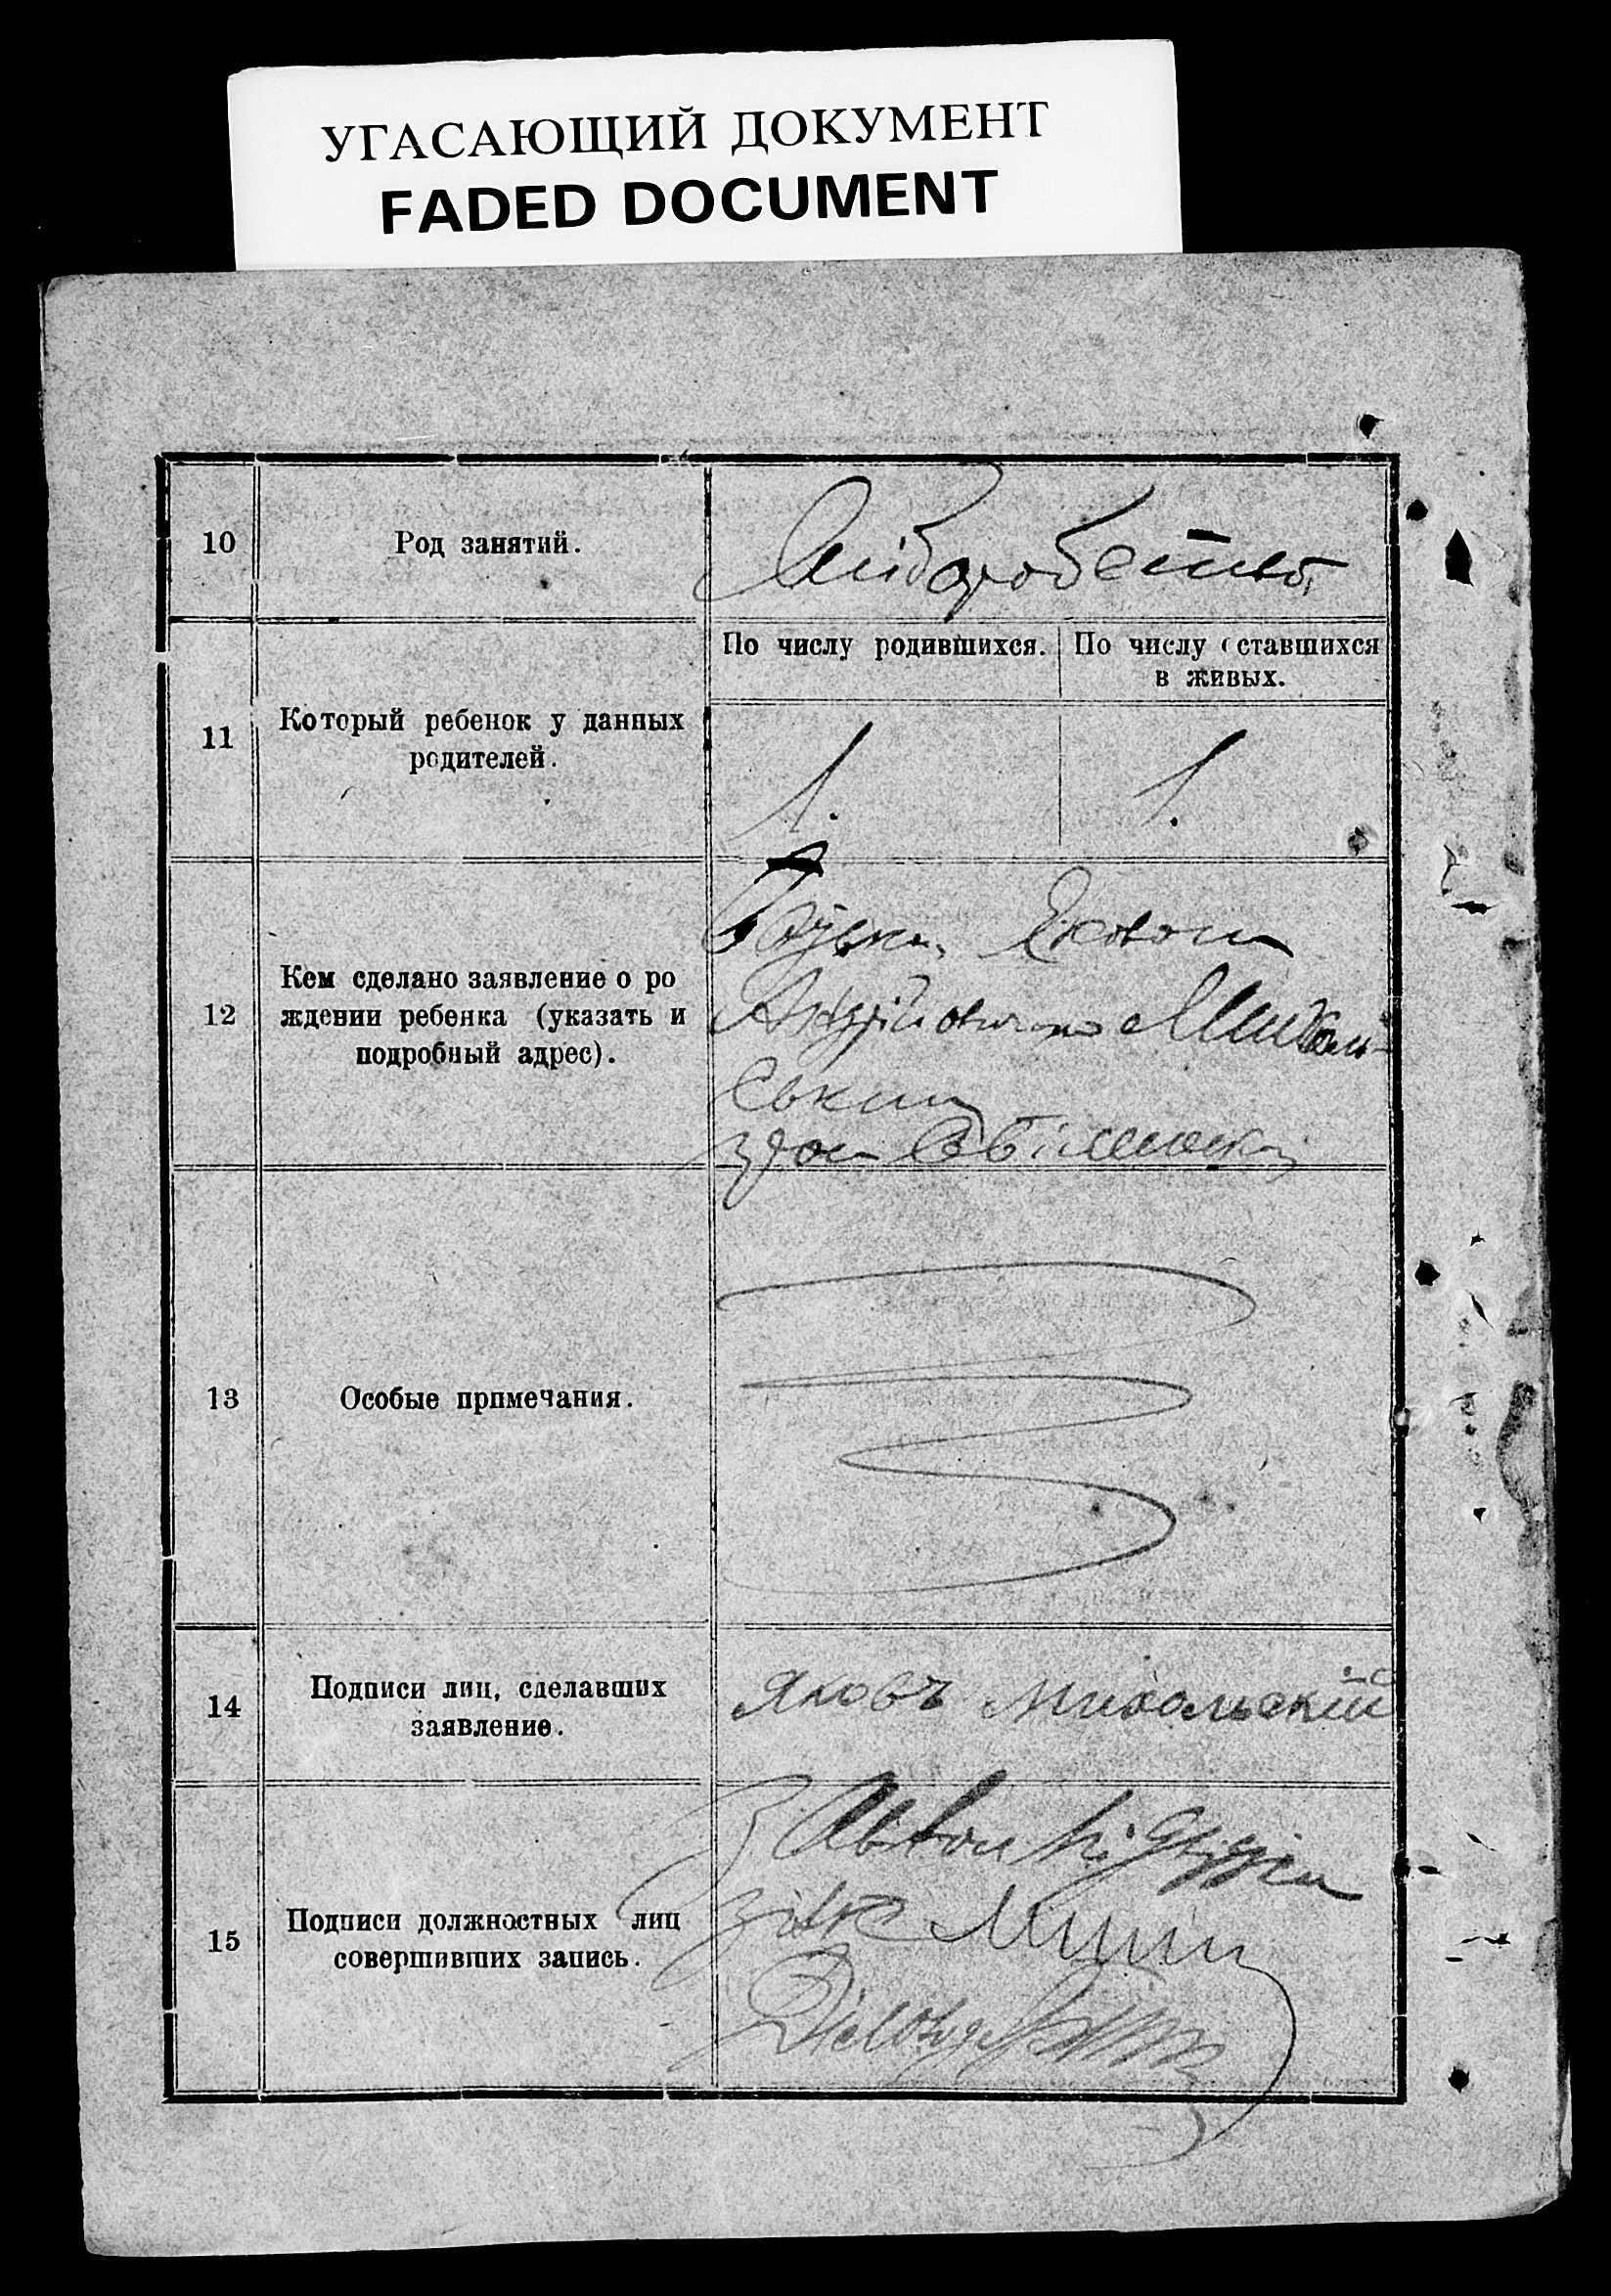 УГАСАЮЩИЙ ДОКУМЕНТ
FADED DOCUMENT
10
Род занятий.
Хліборобство
11
Который ребенок у данных
родителей.
По числу родившихся.
По числу оставшихся
в живых.
1.
1.
12
Кем сделано заявление о ро
ждении ребенка (указать и
подробный адрес).
Яковом
Андрійовичом Михаль-
ським
13
Особые примечания.
14
Подписи лиц, сделавших
заявление.
Яковъ Михальскій
15
Подписи должностных лиц
совершивших запись.